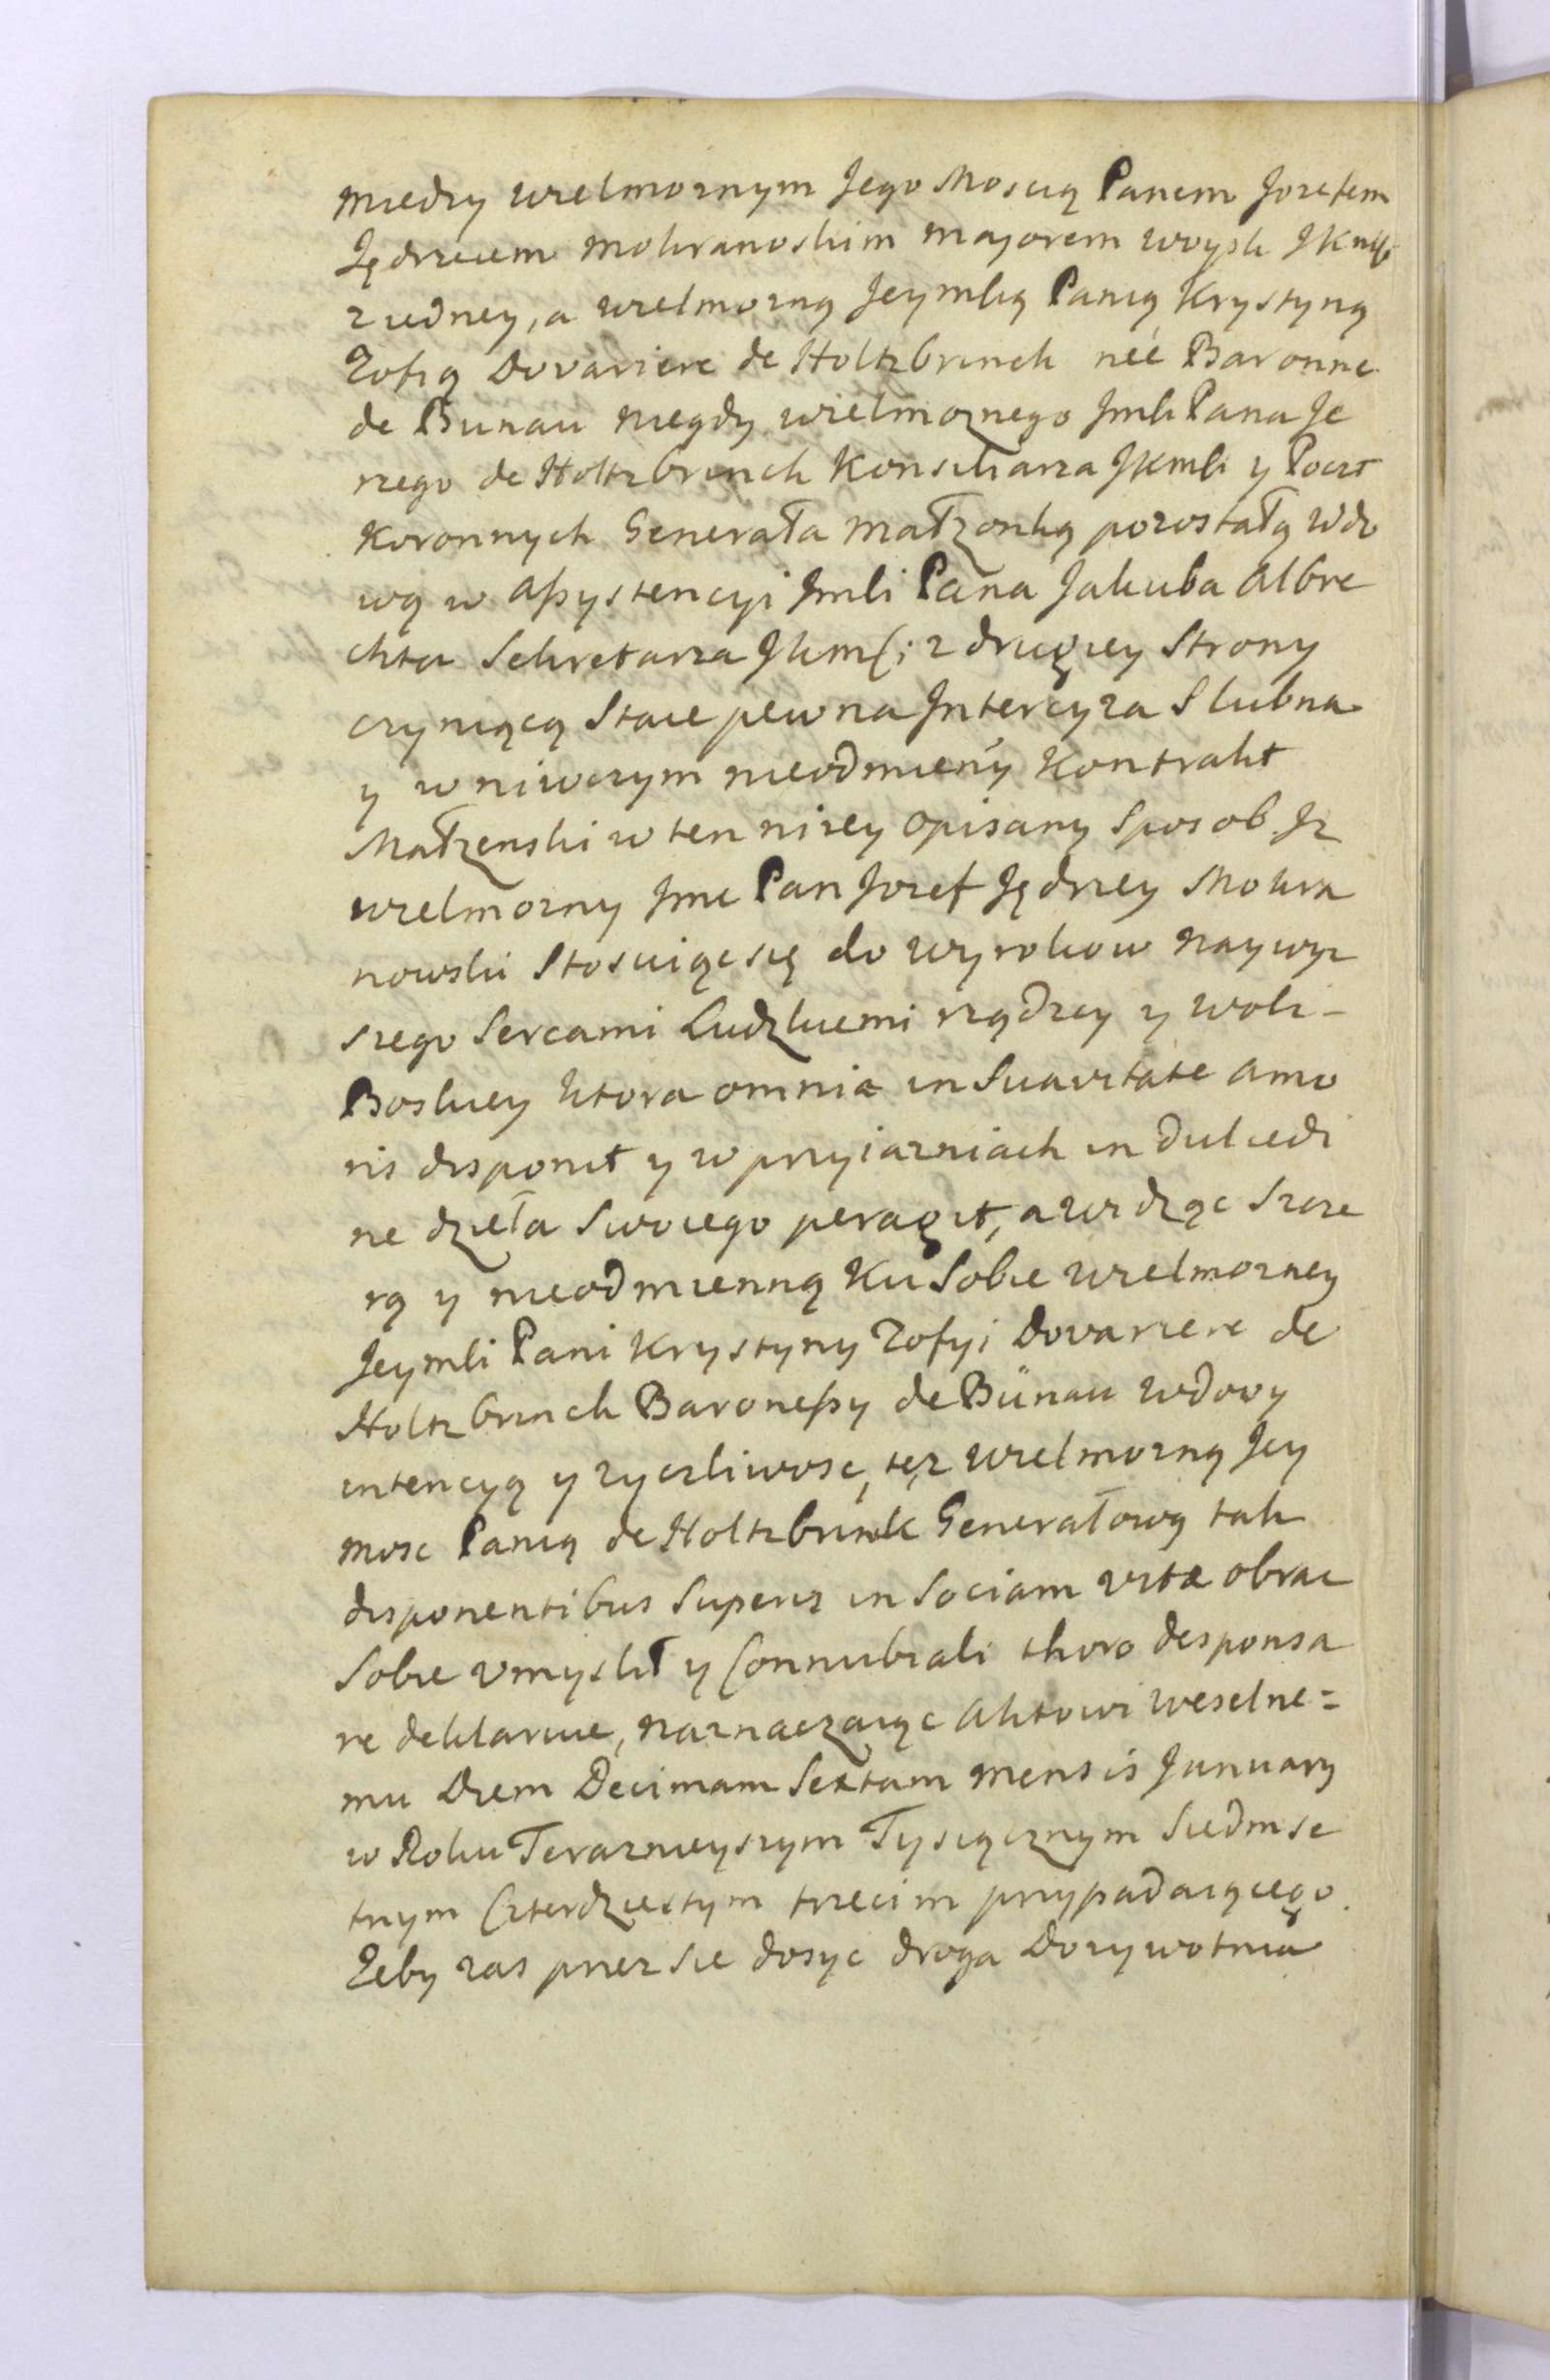 miedzy wielmoznym Jego Moscią Panem Jozefem
Jędrzeiem Mokranoskim majorem woysk JKMći
z iedney, a wielmozną Jeymścią Panią Krystyną
Zofią Dovariere de Holtzbrinck neé Baronne
de Bunau niegdy wielmoznego Jmśi Pana Je
rzego de Holtzbrinck Konsiliarza JKmśi y Poczt
Koronnych Generała małzonką pozostałą wdo
wą w assystencyi Jmśi Pana Jakuba Albre
chta Sekretarza JKmśi z drugiey Strony
czyniącą Staie pewna Intercyza Slubna
y w niwczym nieodmieny Kontrakt
Małzenski w ten nizey opisany Sposob. Jz
wielmozny Jmc Pan Jozef Jędrzey Mokra
nowski Stosuiąc się do wyrokow naywyz
szego Sercami Ludzkiemi rządzcy y woli-
Boskiey ktora omnia in Suavitate amo
ris disponit y w przyiazniach in dulcedi
ne dzieła Swoiego peragit, a widząc Szcze
rą y nieodmienną Ku Sobie wielmozney
Jeymśi Pani Krystyny Zofyi Dovariere de
Holtzbrinck Baronessy de Bünau wdowy
intencyą y zyczliwosc, tęz wielmozną Jey
mosc Panią de Holtzbrink Generałową tak
disponentibus Superis in Sociam vitæ obrac
Sobie umyslił y Connubiali thoro desponsa
re deklaruie, naznaczaiąc Aktowi weselne=
mu Diem Decimam Sextam mensis January
w Roku Teraznieyszym Tysiącznym Siedmse
tnym Czterdziestym trzecim przypadaiącego.
Zeby zas przez sie dosyc droga Dozywotnia